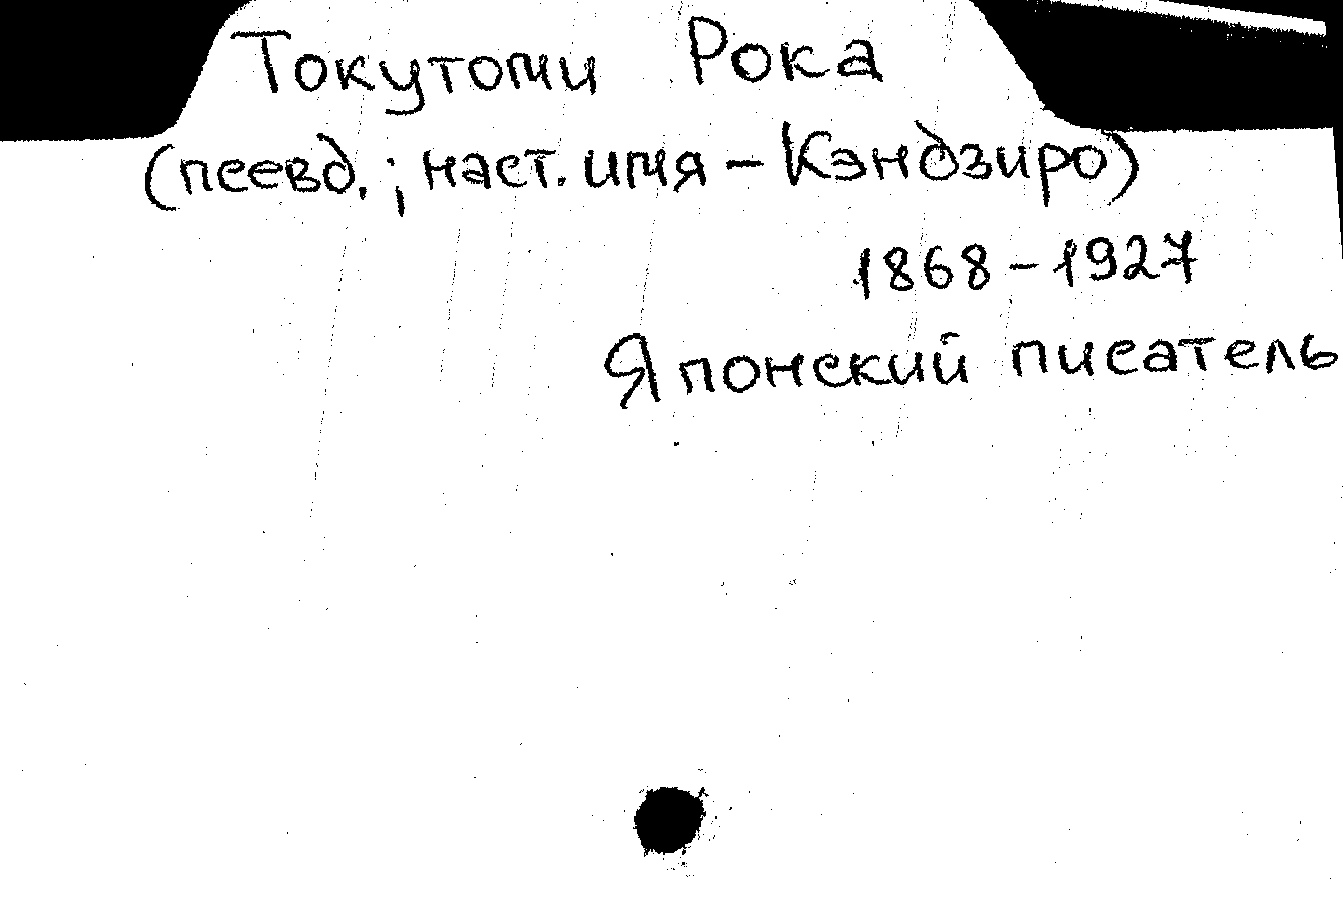 Токутоми Рока
(псевд.; наст. имя – Кэндзиро)
1868 – 1927
Японский писатель